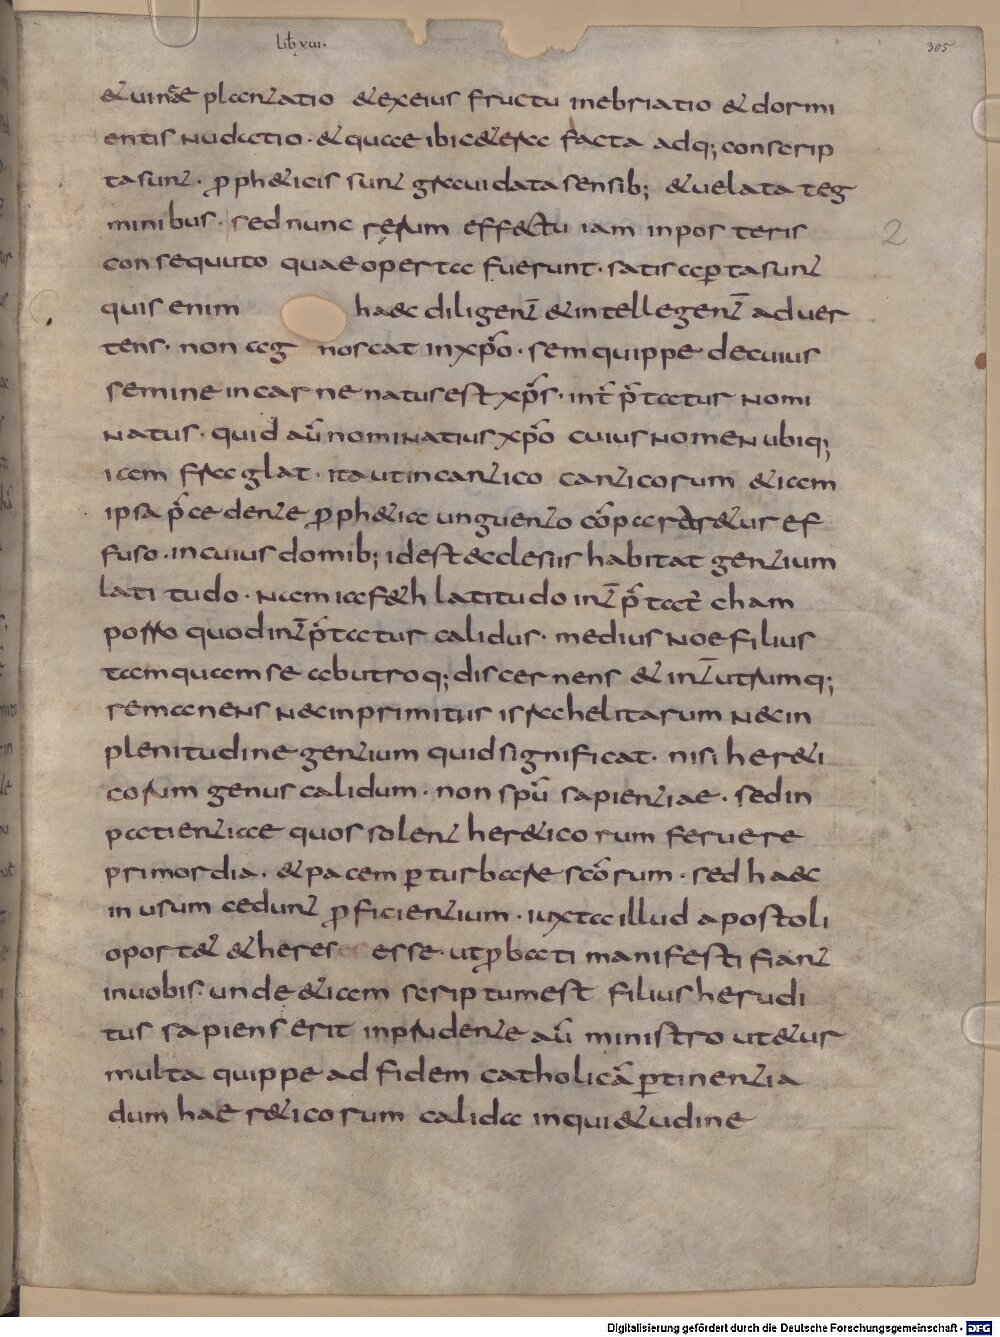 Lib xvii.
305
& uineae plantatio & ex eius fructu inebriatio & dormi
entis nudatio · & quae ibi c&era facta adq; conscrip
ta sunt · ꝓph&icis sunt grauidata sensib; & uelata teg
minibus · sed nunc rerum effectu iam in posteris
2
consequuto quae operta fuerunt · satis aꝑta sunt
quis enim haec diligent̄ & intellegent̄ aduer
tens · non ag noscat in xp̄o · sem quippe de cuius
semine in carne natus est xp̄s · int̄ p̄tatur nomi
natus · quid aū nominatius xp̄o cuius nomen ubiq;
iam fraglat · ita ut in cantico canticorum &iam
ipsa p̄cedente ꝓph&ia unguento cōpar&ur ef
fuso · in cuius domib; id est aecclesiis habitat gentium
latitudo · nam iafeth latitudo int̄ p̄tat̄ cham
porro quod int̄p̄tatur calidus · medius noe filius
tamquam se ab utroq; discernens & int̄ utrumq;
remanens nec in primitiis israhelitarum nec in
plenitudine gentium quid significat · nisi her&i
corum genus calidum · non spū sapientiae · sed in
patientiae quo solent her&icorum feruere
primordia · & pacem ꝑturbare scōrum · sed haec
in usum cedunt ꝓficientium · iuxta illud apostoli
oport& & heres esse · ut ꝓbati manifesti fiant
in uobis · unde &iam scriptum est filius herudi
tus sapiens erit inprudente aū ministro ut&ur
multa quippe ad fidem catholicā ꝑtinentia
dum haer&icorum calida inqui&udine
Digitalisierung gefördert durch die Deutsche Forschungsgemeinschaft - DFG